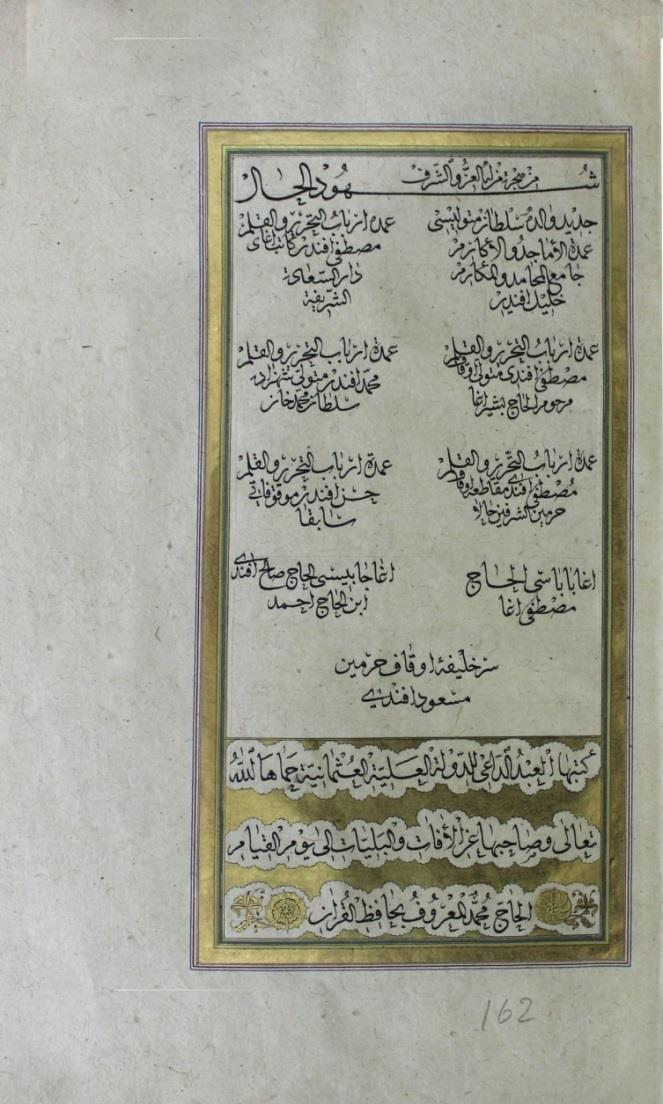 شهود الحال
جديد والده سلطان متوليسى
عمدة الأماجد والأكارم
جامع المحامد والمكارم
خليل افندى
عمدة ارباب التحرير والقلم
مصطفى افندى كاتب اغاى
دار السعادة
الشريفة
عمدة ارباب التحرير والقلم
مصطفى افندى متولى اوقاف
مرحوم الحاج بشير اغا
عمدة ارباب التحرير والقلم
محمد افندى متولى شهزاده
سلطان محمد خان
عمدة ارباب التحرير والقلم
مصطفى افندى مقاطعه اوقاف
حرمين الشرفين حالا
عمدة ارباب التحرير والقلم
حسن افندى موقوفاتى
سابقا
اغا باباسى الحاج
مصطفى اغا
اغا جابيسى الحاج صالح افندى
ابن الحاج احمد
سر خليفه اوقاف حرمين
مسعود افندى
كتبها العبد الداعى للدولة العلية العثمانية حماها الله
تعالى وصاحبها عن الآفات والبليات الى يوم القيام
الحاج محمد المعروف بحافظ القرآن
162